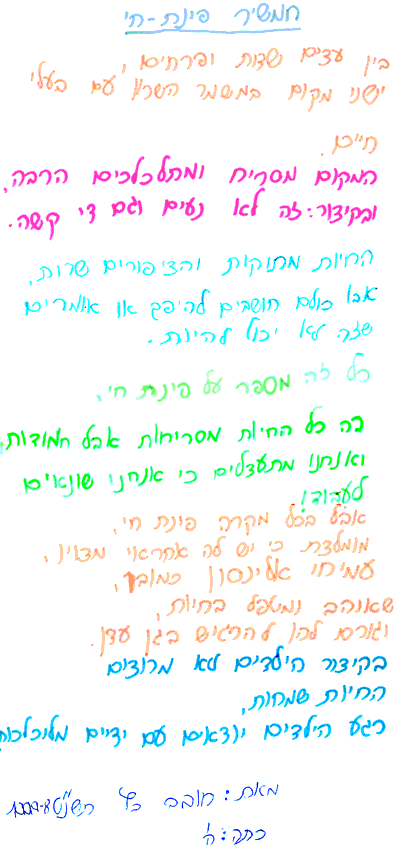 חמשיר פינת-חי
בין עצים שדות ופרחים,
ישנו מקום במשמר השרון עם בעלי
חיים.
המקום מסריח ומתלכלכים הרבה,
ובקיצור: זה לא נעים וגם די קשה.
החיות מתוקות והציפורים שרות,
אבל כולם חושבים להיפך או אומרים
שזה לא יכול להיות.
כל זה מספר על פינת חי,
בה כל החיות מסריחות אבל חמודות,
ואנחנו מתעצלים כי אנחנו שונאים
לעבוד!
אבל בכל מקרה פינת חי,
מומלצת כי יש לה אחראי מצוין,
עמיחי אלינסון כמובן,
שאוהב לטפל בחיות,
וגורם להן להרגיש בגן עדן.
בקיצור הילדים לא מרוצים
החיות שמחות,
רגע הילדים יוצאים עם ידיים מלוכלכות
מאת: חובב כץ תשנ"ט 1999-8
כתה: ה'